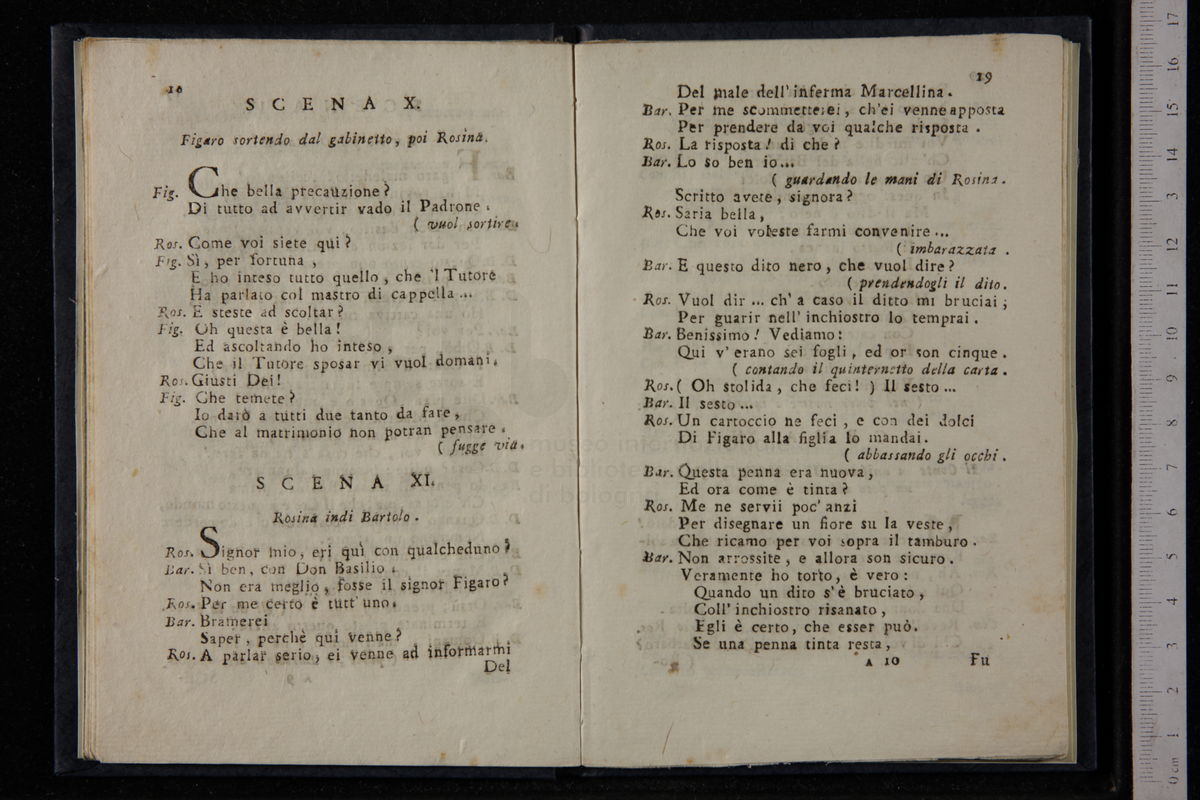 18
SCENA X.
Figaro sortendo dal gabinetto, poi Rosina.
Fig. Che bella precauzione?
Di tutto ad avvertir vado il Padrone.
( vuol sortire.
Ros. Come voi siete qui?
Fig. Sì, per fortuna,
E ho inteso tutto quello, che 'l Tutore
Ha parlato col mastro di cappella...
Ros. E steste ad scoltar?
Fig. Oh questa è bella!
Ed ascoltando ho inteso,
Che il Tutore sposar vi vuol domani.
Ros. Giusti Dei!
Fig. Che temete?
Io darò a tutti due tanto da fare,
Che al matrimonio non potran pensare.
( fugge via.
SCENA XI.
Rosina indi Bartolo.
Ros. Signor mio, eri quì con qualcheduno?
Bar. Sì ben, con Don Basilio.
Non era meglio, fosse il signor Figaro?
Ros. Per me certo è tutt' uno.
Bar. Bramerei
Saper, perchè qui venne?
Ros. A parlar serio, ei venne ad informarmi
Del
19
Del male dell' inferma Marcellina.
Bar. Per me scommetterei, ch'ei venne apposta
Per prendere da voi qualche risposta.
Ros. La risposta! di che?
Bar. Lo so ben io...
( guardando le mani di Rosina.
Scritto avete, signora?
Ros. Saria bella,
Che voi voleste farmi convenire...
( imbarazzata.
Bar. E questo dito nero, che vuol dire?
( prendendogli il dito.
Ros. Vuol dir ... ch' a caso il ditto mi bruciai;
Per guarir nell' inchiostro lo temprai.
Bar. Benissimo! Vediamo:
Qui v' erano sei fogli, ed or son cinque.
( contando il quinternetto della carta.
Ros. ( Oh stolida, che feci! ) Il sesto...
Bar. Il sesto...
Ros. Un cartoccio ne feci, e con dei dolci
Di Figaro alla figlia lo mandai.
( abbassando gli occhi.
Bar. Questa penna era nuova,
Ed ora come è tinta?
Ros. Me ne servii poc' anzi
Per disegnare un fiore su la veste,
Che ricamo per voi sopra il tamburo.
Bar. Non arrossite, e allora son sicuro.
Veramente ho torto, è vero:
Quando un dito s' è bruciato,
Coll' inchiostro risanato,
Egli è certo, che esser può.
Se una penna tinta resta,
A 10 Fu
0 cm 1 2 3 4 5 6 7 8 9 10 11 12 13 14 15 16 17